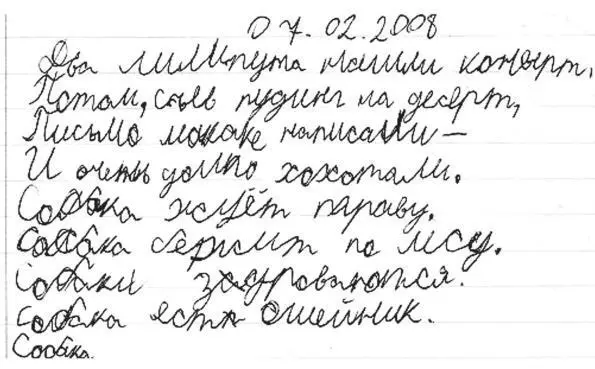 07.02.2008
Два лилипута нашли конверт,
Потом, съев пудинг на десерт,
Письмо макаке написали —
И очень долго хохотали.
Собака жуёт параву.
Собака бежит по лесу.
Собаки здороваются.
Собака есть ошейник.
Собака.